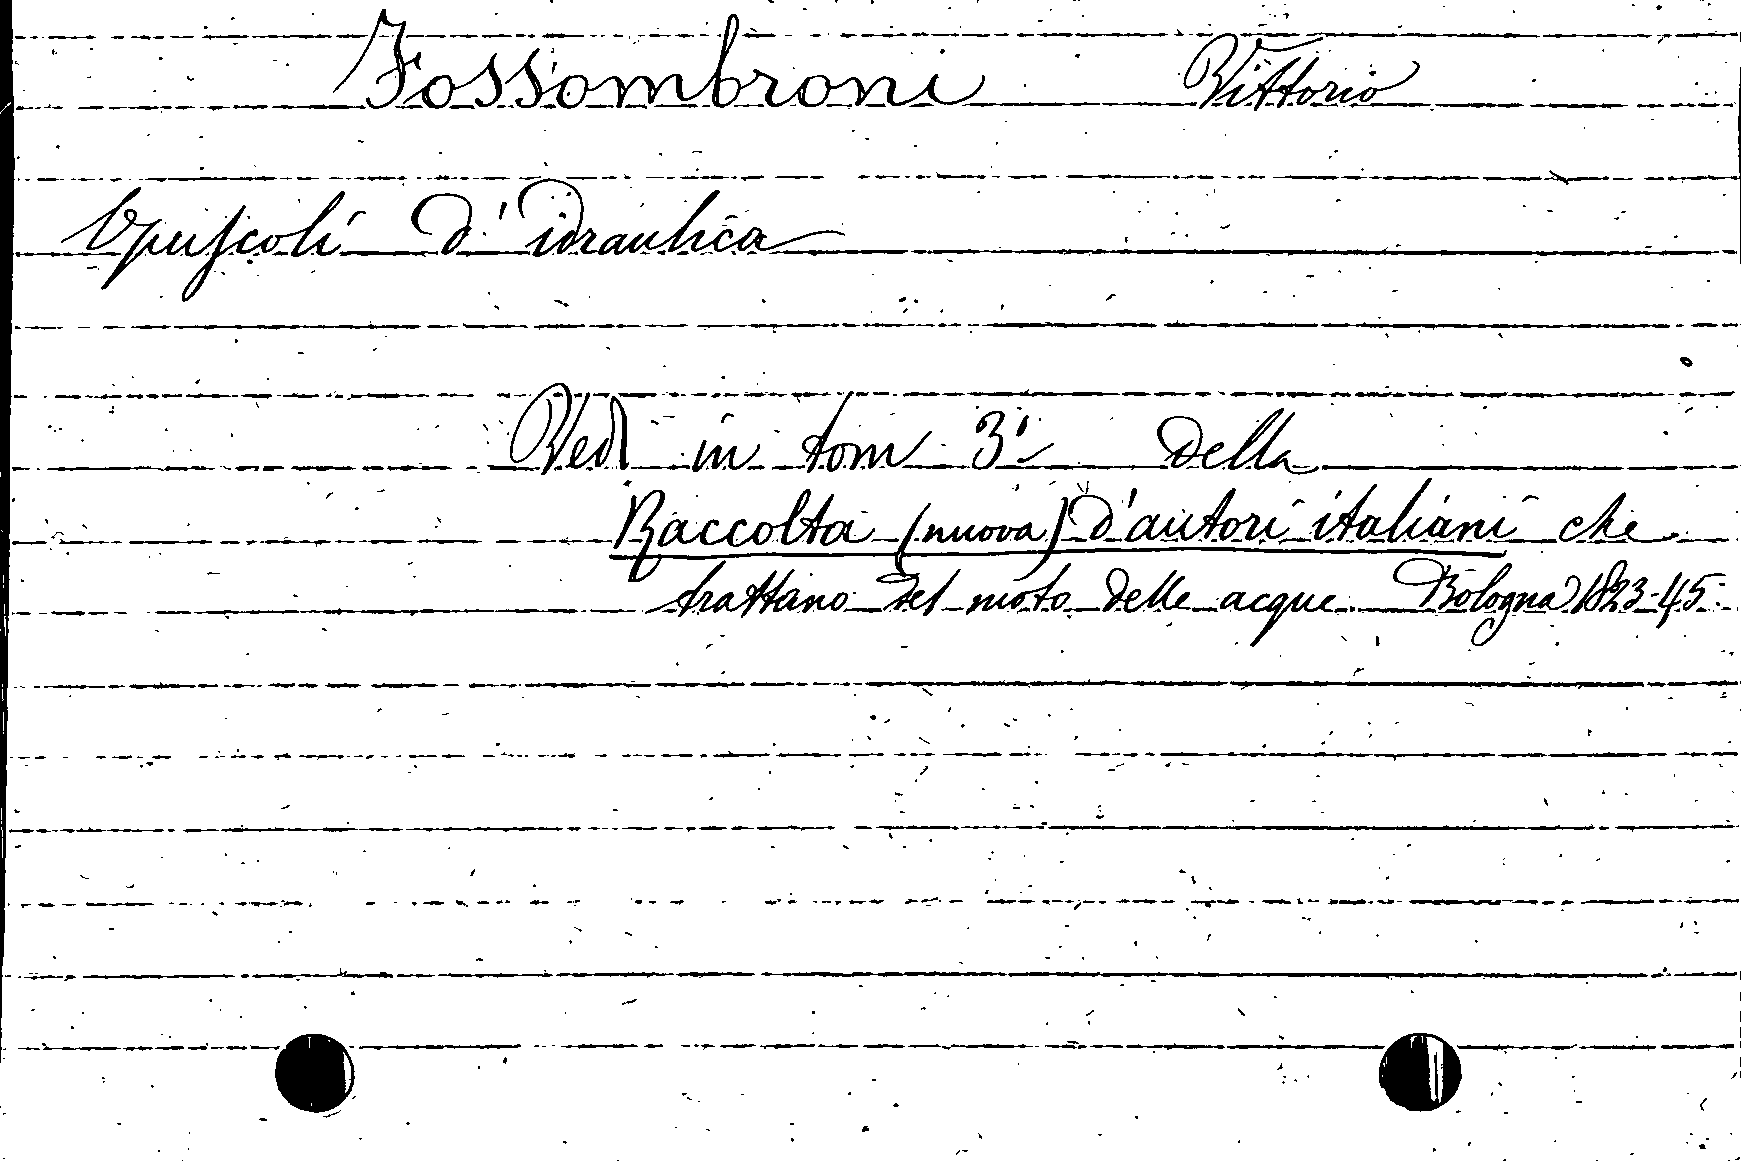 Fossombroni Vittorio
Opuscoli d'idraulica
Vedi in tom 3º della
Raccolta (nuova) d'autori italiani che
trattano del moto delle acque. Bologna 1823-45.